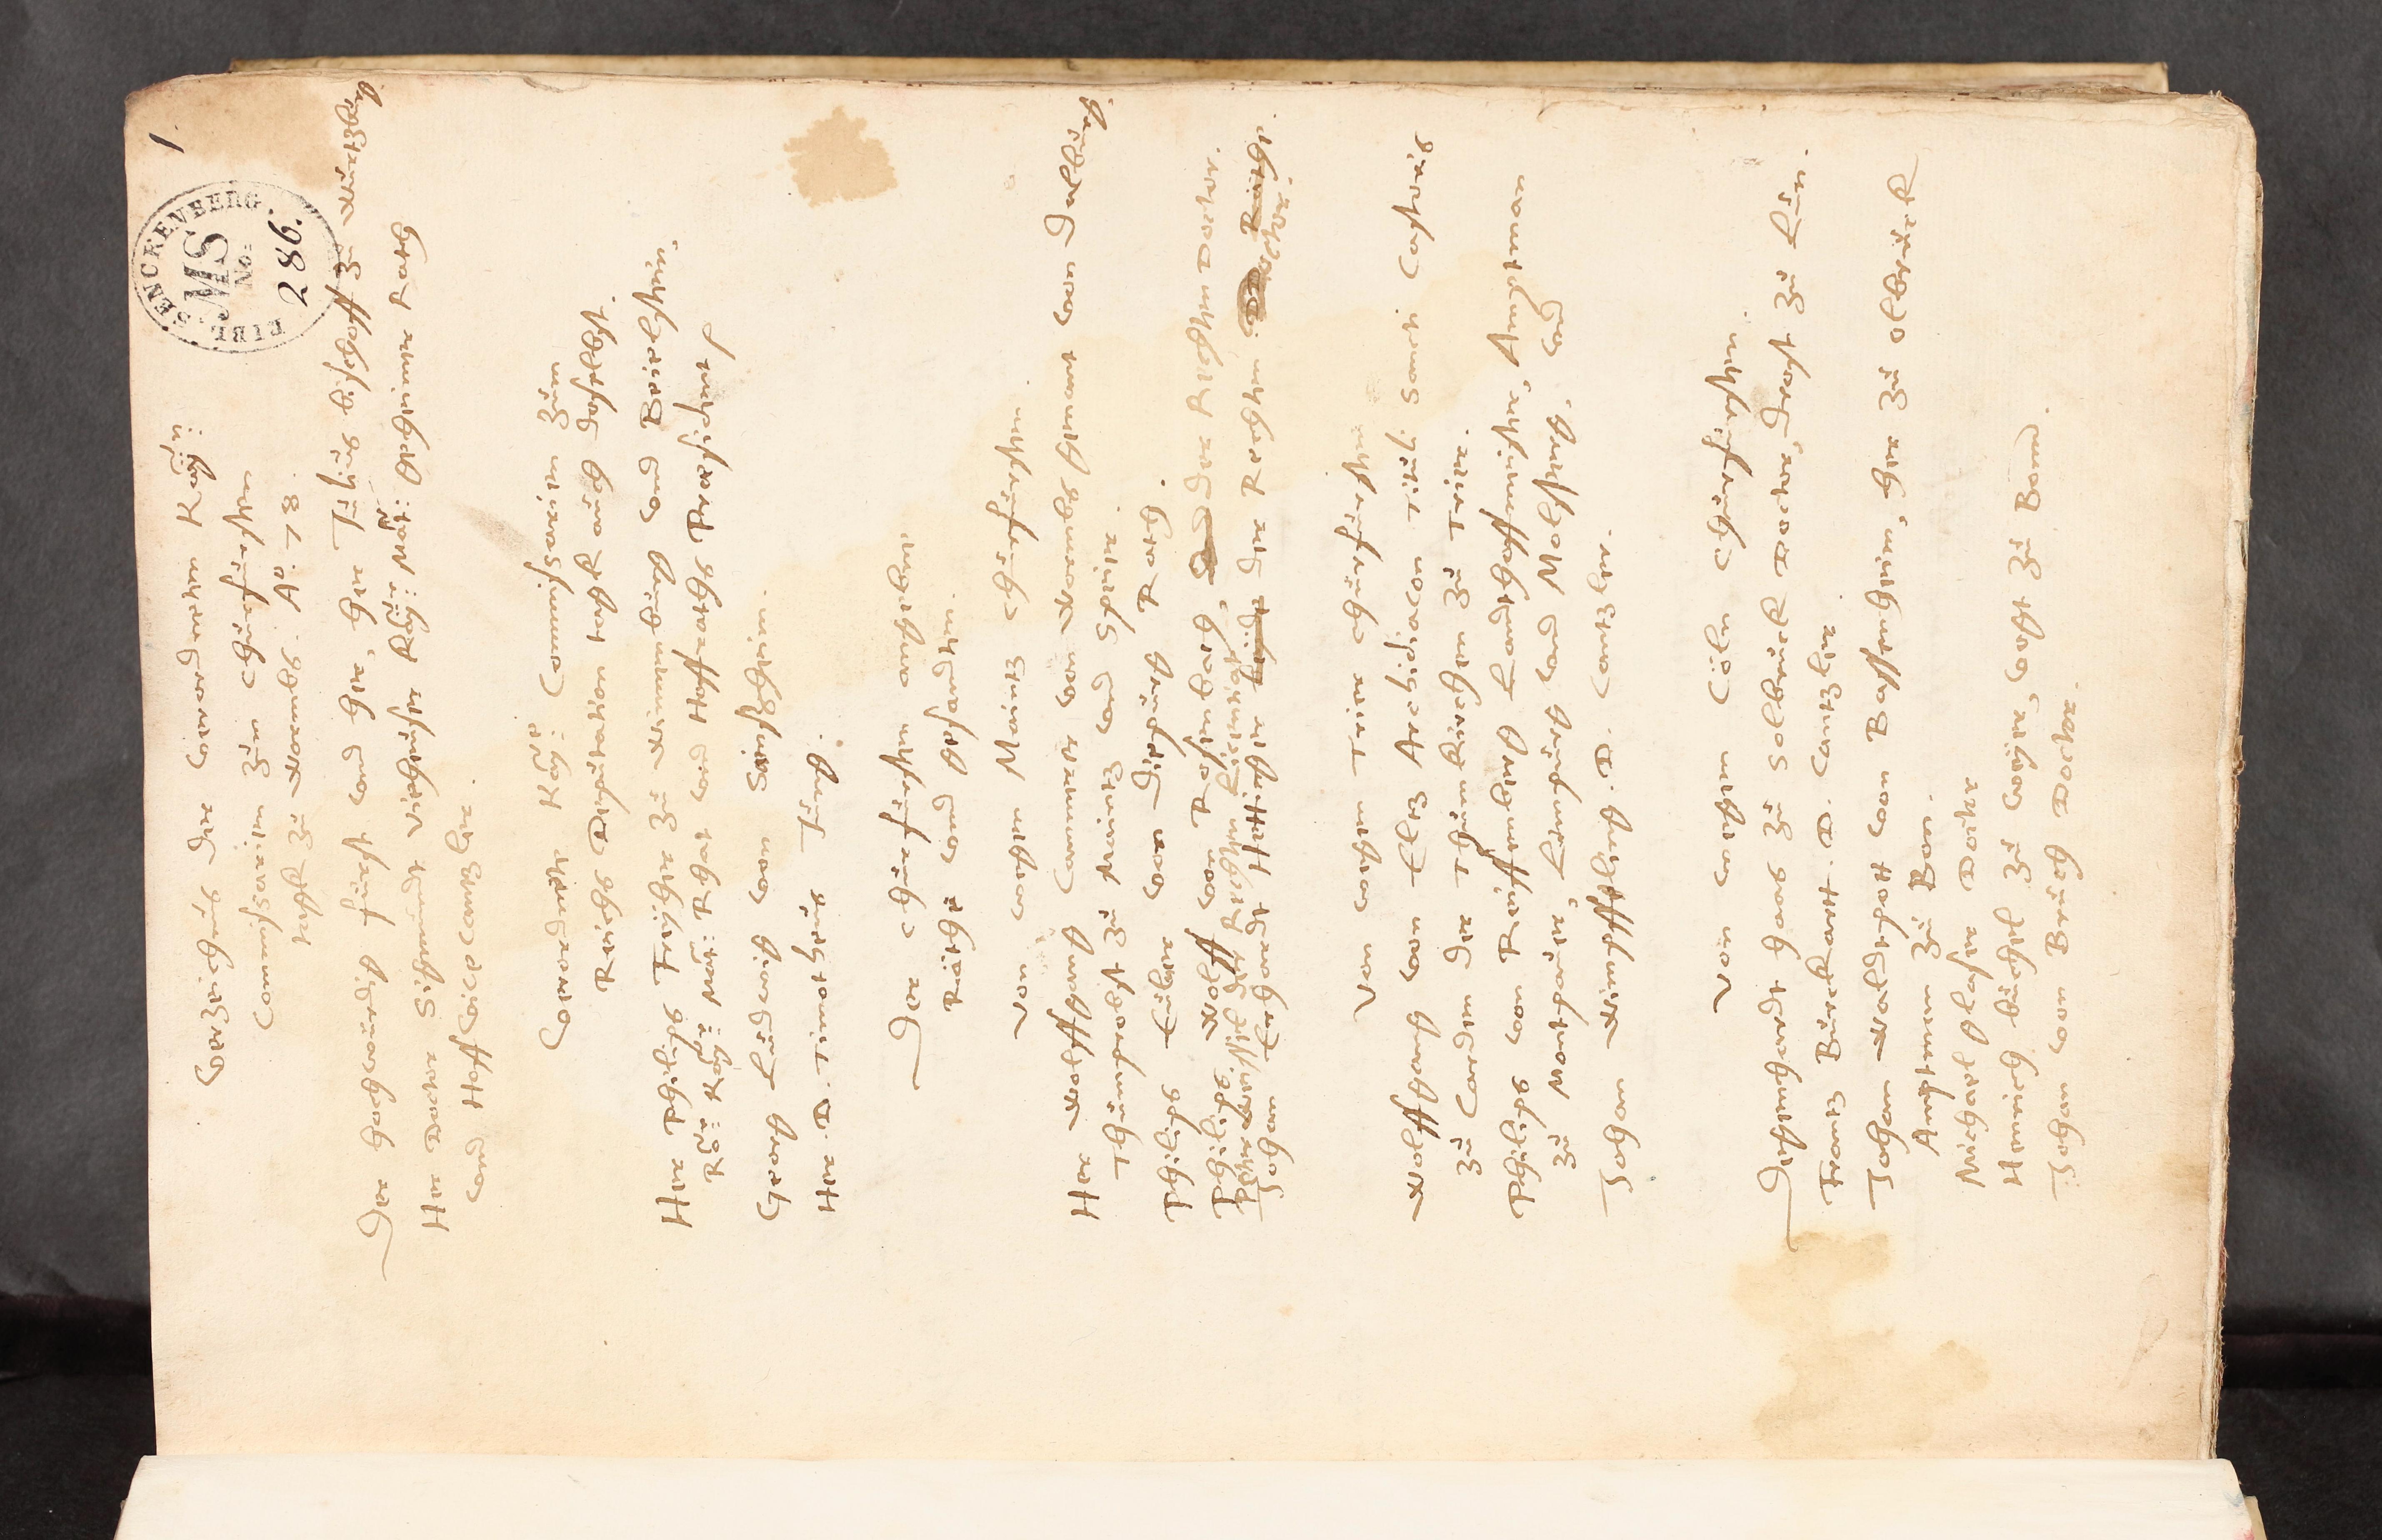 1.
BIBL. SENCKENBERG.
MS
No:
286.
Verzeichnus der verordneten Kaÿ:n
Commissarien zün Chürfürsten
tagk zü Wormbs. A°. 78.
Der hochwürdig fürst vnd her, her Jülius bischoff zu Würtzbürg
Her Doctor Sigmundt Vieheüser Röm: Kaÿ: Maÿt: geheimer Rath
vnd Hoff Vice Cantzler.
Verordente Kaÿ: Commissarien zum
Reichs Deputation tagk auch daselbst.
Her Philips Freiher zü Winnenbürg vnd Beielstein
Röm: Kaÿ: Maÿt: Rhat vnd Hoffraths President
Georg Lüdwig von Seinßheim.
Her. D. Timotheüs Jüng.
Der Chürfürsten ansehen
Räthe vnd gesandten.
Von wegen Maintz Chürfürsten.
Her Wolffgang Cammerer von Wormbs genant von Dalbürg
Thümprobst zü Maintz vnd Speier.
Philips Eüler von Diepürg Rath.
Philips Wolff von Rosenbach, der Rechten Doctor.
Johan Enghardt der Rechten
Von wegen Trier Chürfürsten
Wolffgang von Eltz Archidiacon Titül: Sancti Castoris
zü Carden der Thümkirchen zü Trier.
Philips von Reiffenberg Landthoffmeister, Amptman
zü Montpaür, Limpürg vnd Molsberg, vnd
Johan Wimpffeling. D. Cantzler.
Von wegen Cöln Chürfürsten.
Degenhardt Haes zü Sollbrück Doctor, Drost zü Lün.
Frantz Bürckartt. D. Cantzler
Johan Waldtpott von Bassenheim, her zü Olbrück
Amptman zü Bon.
Michael Glaser Doctor
Henning büchel zü weÿer, vogtt zü Bonn.
Johan vom Brüch Doctor.